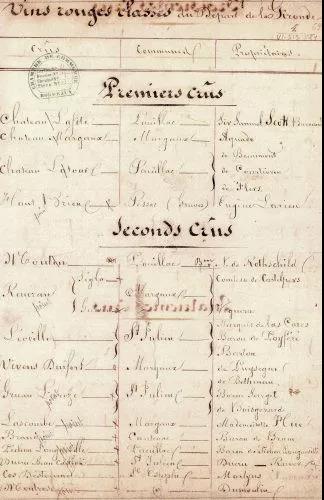 Vins rouges classés du Départ. de la Gironde
Crûs Communes Propriétaires
CHAMBRE DE COMMERCE BORDEAUX
Premiers Crûs
Chateau Lafite Pauillac Sir Samuel Scott
Chateau Margaux Margaux Aguado
Chateau Latour Pauillac de Beaumont
de Courtivron
de Flers
Haut Brion Pessac (Graves) Eugène Larrieu
Seconds Crûs
Mouton Pauillac Bon N. de Rothschild
Rauzan Margaux Comtesse de Castelpers
Léoville St Julien Marquis de Las Cases
Baron de Poyferré
Barton
Vivens Durfort Margaux de Puységur
de Bethmann
Gruau Laroze St Julien Baron Sarget
de Boisgerard
Lascombe Margaux
Brane Cantenac Baron de Brane
Pichon Longueville Pauillac Baron de Pichon Longueville
Ducru Beau Caillou St Julien Ducru Ravez
Cos Destournel St Estèphe Martyns
Montrose Dumoulin